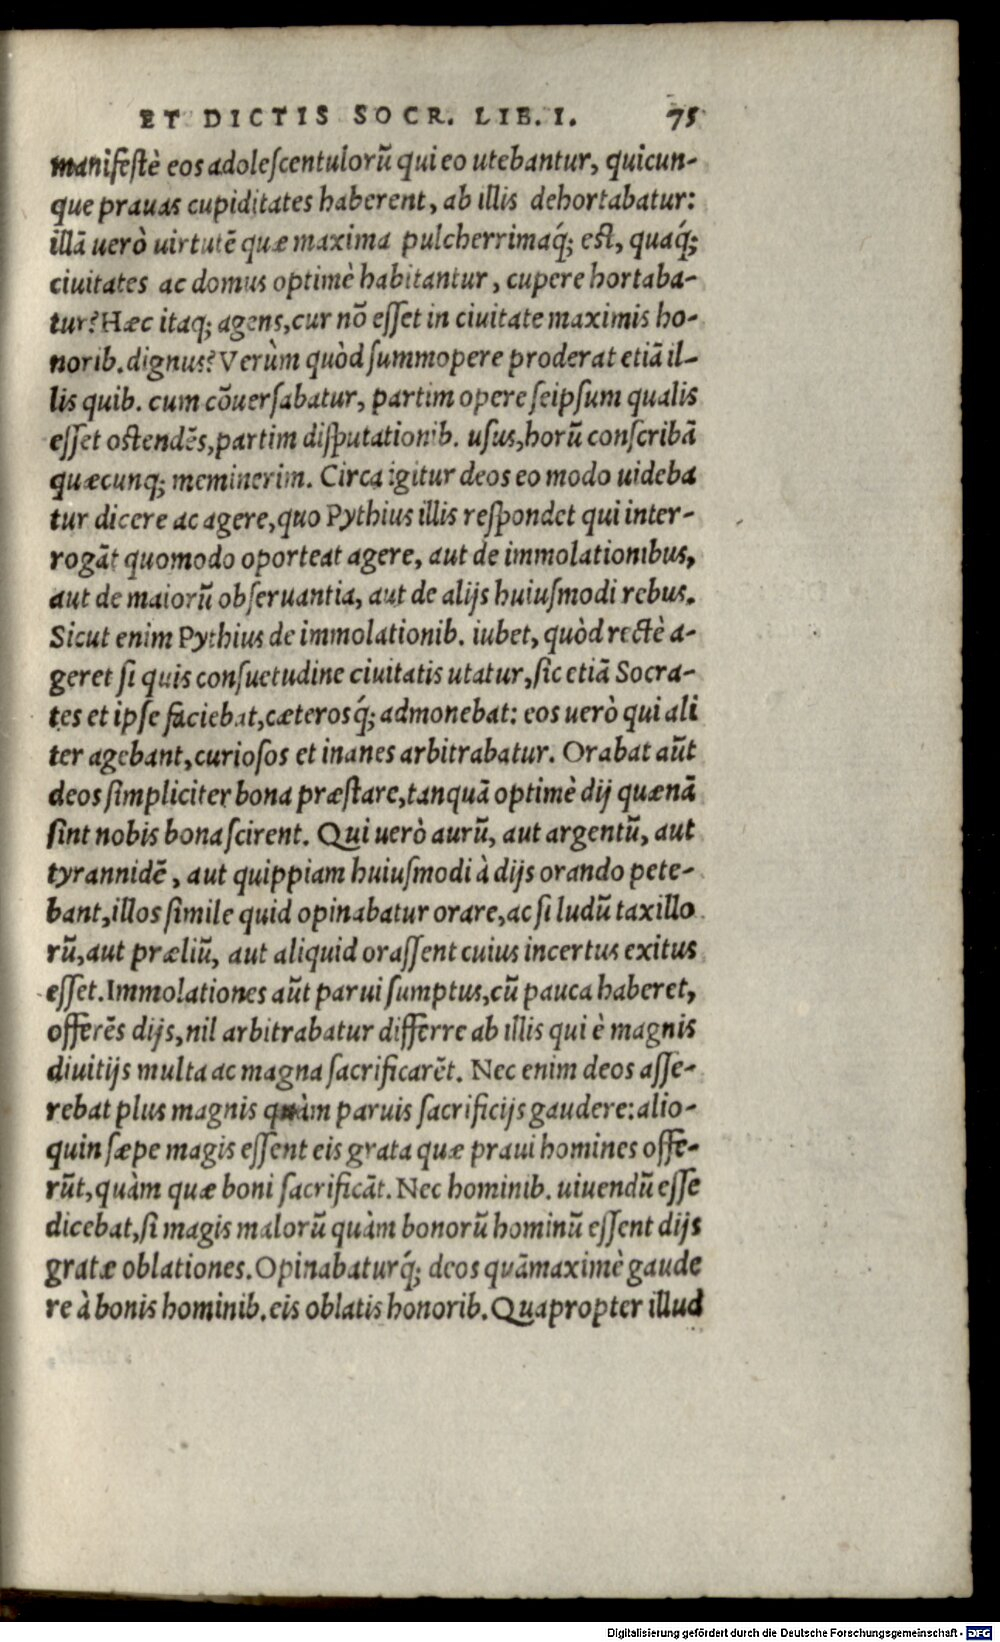 ET DICTIS SOCR. LIB. I. 75
manifestè eos adolescentulorũ qui eo utebantur, quicun-
que prauas cupiditates haberent, ab illis dehortabatur:
illã uerò uirtutẽ quæ maxima pulcherrimaq́; est, quaq́;
ciuitates ac domus optimè habitantur, cupere hortaba-
tur? Hæc itaq; agens, cur nõ esset in ciuitate maximis ho-
norib. dignus? Verùm quòd summopere proderat etiã il-
lis quib. cum cõuersabatur, partim opere seipsum qualis
esset ostendẽs, partim disputationib. usus, horũ conscribã
quæcunq; meminerim. Circa igitur deos eo modo uideba
tur dicere ac agere, quo Pythius illis respondet qui inter-
rogãt quomodo oporteat agere, aut de immolationibus,
aut de maiorũ obseruantia, aut de alijs huiusmodi rebus.
Sicut enim Pythius de immolationib. iubet, quòd rectè a-
geret si quis consuetudine ciuitatis utatur, sic etiã Socra-
tes et ipse faciebat, cæterosq́; admonebat: eos uerò qui ali
ter agebant, curiosos et inanes arbitrabatur. Orabat aũt
deos simpliciter bona præstare, tanquã optimè dij quænã
sint nobis bona scirent. Qui uerò aurũ, aut argentũ, aut
tyrannidẽ, aut quippiam huiusmodi à dijs orando pete-
bant, illos simile quid opinabatur orare, ac si ludũ taxillo
rũ, aut præliũ, aut aliquid orassent cuius incertus exitus
esset. Immolationes aũt parui sumptus, cũ pauca haberet,
offerẽs dijs, nil arbitrabatur differre ab illis qui è magnis
diuitijs multa ac magna sacrificarẽt. Nec enim deos asse-
rebat plus magnis quàm paruis sacrificijs gaudere: alio-
quin sæpe magis essent eis grata quæ praui homines offe-
rũt, quàm quæ boni sacrificãt. Nec hominib. uiuendũ esse
dicebat, si magis malorũ quàm bonorũ hominũ essent dijs
gratæ oblationes. Opinabaturq́; deos quãmaximè gaude
re à bonis hominib. eis oblatis honorib. Quapropter illud
Digitalisierung gefördert durch die Deutsche Forschungsgemeinschaft - DFG